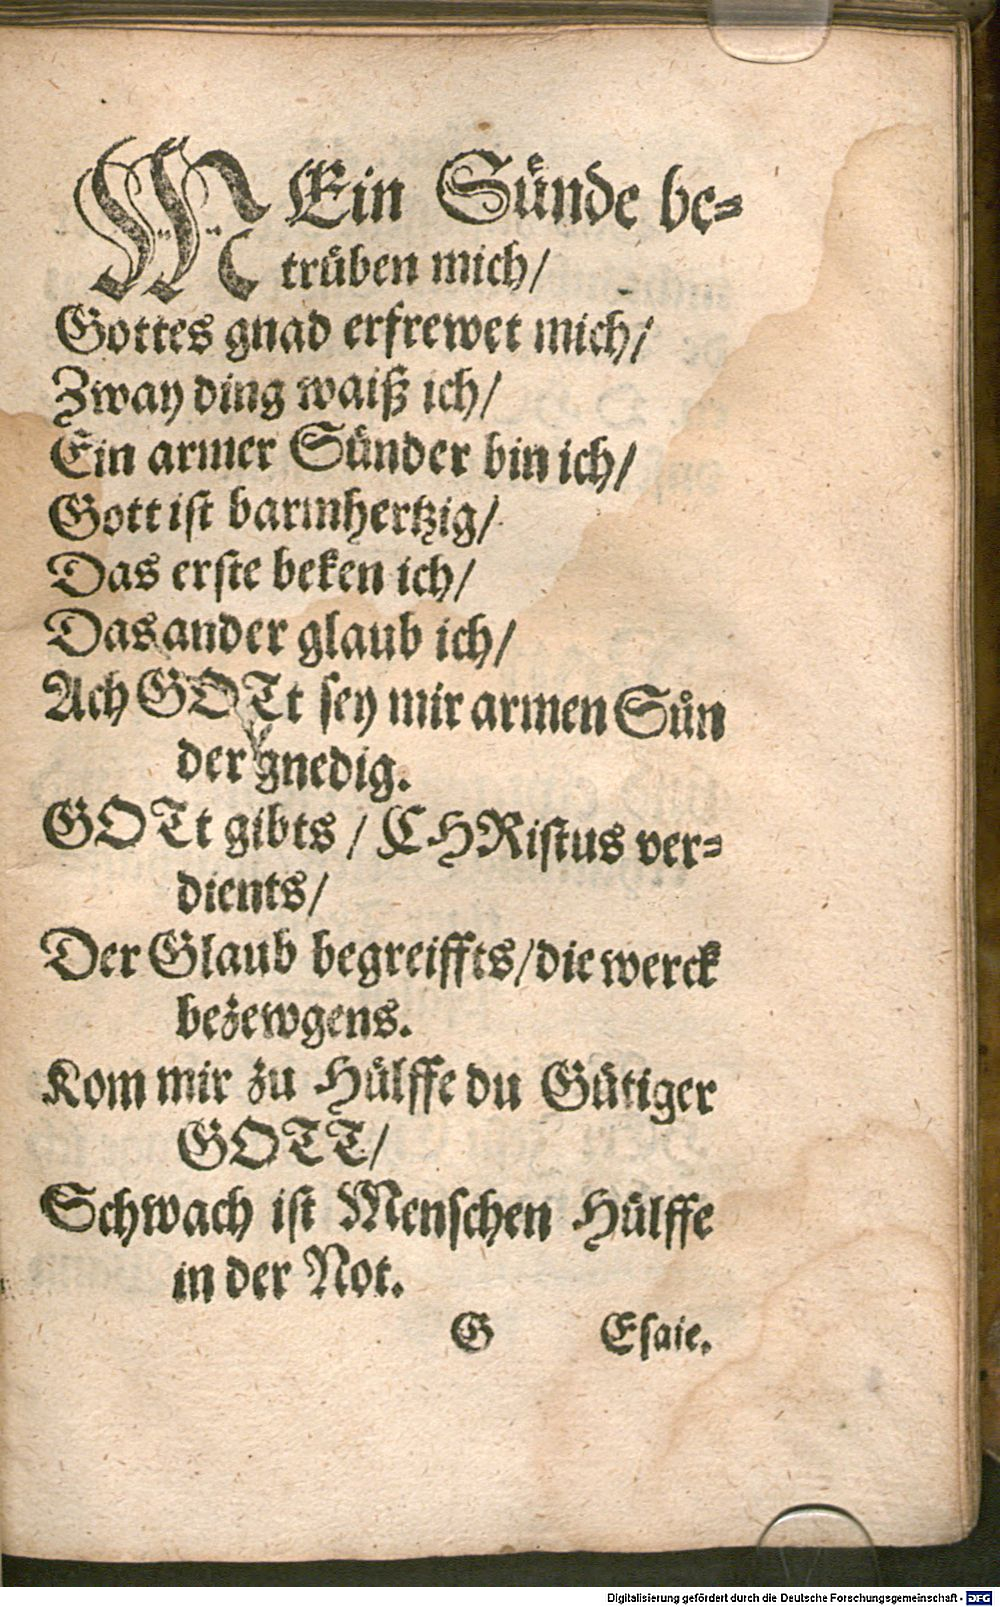 MEin Sünde be-
trüben mich/
Gottes gnad erfrewet mich/
Zway ding waiß ich/
Ein armer Sünder bin ich/
Gott ist barmhertzig/
Das erste beken ich/
Das ander glaub ich/
Ach GOTt sey mir armen Sün
der gnedig.
GOTt gibts / CHRistus ver-
dients/
Der Glaub begreiffts/die werck
bezewgens.
Kom mir zu Hülffe du Gütiger
GOTT/
Schwach ist Menschen Hülffe
in der Not.
G Esaie.
Digitalisierung gefördert durch die Deutsche Forschungsgemeinschaft - DFG